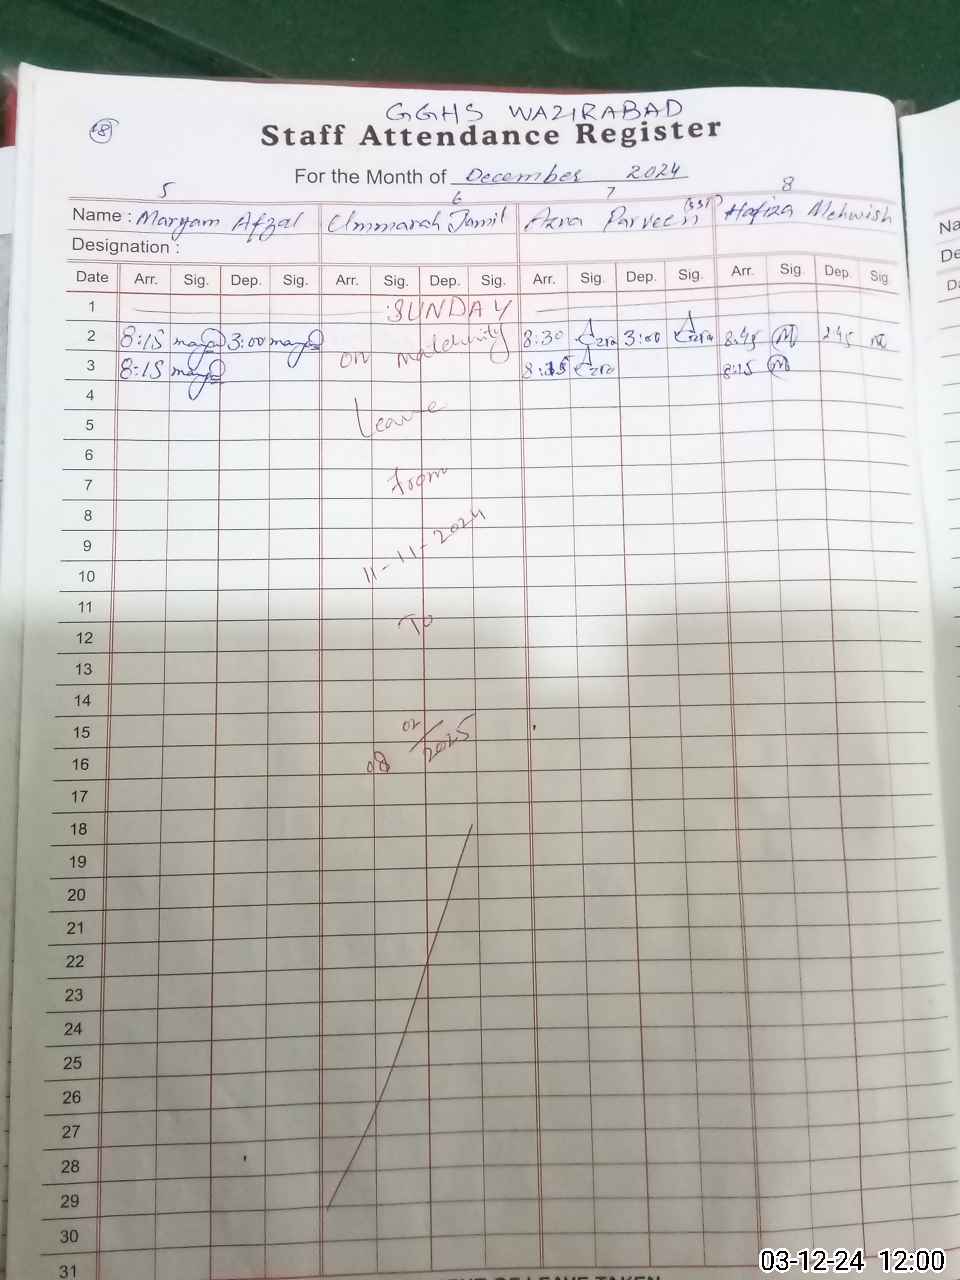 GGHS WAZIRABAD
18
Staff Attendance Register
For the Month of December 2024
5 6 7 8
Name : Maryam Afzal Ummarah Jamil Azra Parveen (SST) Hafiza Mehwish
Designation :
Date Arr. Sig. Dep. Sig. Arr. Sig. Dep. Sig. Arr. Sig. Dep. Sig. Arr. Sig. Dep. Sig.
1 SUNDAY
2 8:15 3:00 on 8:30 Azra 3:00 Azra 8:45 M 2:45
3 8:15 8:15 Azra 8:15 M
4 Leave
5
6
7 From
8
9 11-11-2024
10
11
12 To
13
14
15
16 08 02/2025
17
18
19
20
21
22
23
24
25
26
27
28
29
30
31
03-12-24 12:00